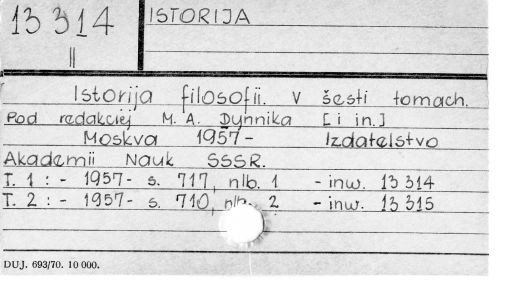 13 314
II
ISTORIJA
Istorija filosofii. V šesti tomach.
Pod redakciej M. A. Dynnika [i in.]
Moskva 1957- Izdatelstvo
Akademii Nauk SSSR.
T. 1 : - 1957- s. 717, nlb. 1 - inw. 13 314
T. 2 : - 1957- s. 710, nlb. 2 - inw. 13 315
DUJ. 693/70. 10 000.